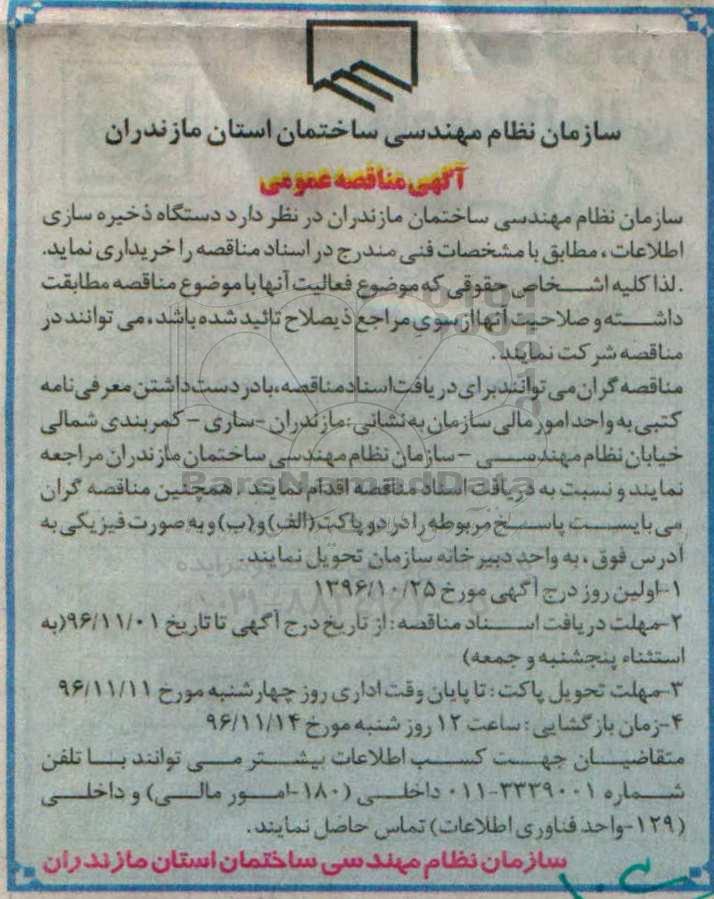 سازمان نظام مهندسی ساختمان استان مازندران
آگهی مناقصه عمومی
سازمان نظام مهندسی ساختمان مازندران در نظر دارد دستگاه ذخیره سازی
اطلاعات ، مطابق با مشخصات فنی مندرج در اسناد مناقصه را خریداری نماید.
.لذا کلیه اشخاص حقوقی که موضوع فعالیت آنها با موضوع مناقصه مطابقت
داشته و صلاحیت آنها از سوی مراجع ذیصلاح تائید شده باشد، می توانند در
مناقصه شرکت نمایند.
مناقصه گران می توانند برای دریافت اسناد مناقصه، با در دست داشتن معرفی نامه
کتبی به واحد امور مالی سازمان به نشانی: مازندران -ساری - کمربندی شمالی
خیابان نظام مهندسی - سازمان نظام مهندسی ساختمان مازندران مراجعه
نمایند و نسبت به دریافت اسناد مناقصه اقدام نمایند . همچنین مناقصه گران
می بایست پاسخ مربوطه را در دو پاکت (الف) و (ب) و به صورت فیزیکی به
آدرس فوق ، به واحد دبیرخانه سازمان تحویل نمایند.
۱-اولین روز درج آگهی مورخ ۱۳۹۶/۱۰/۲۵
۲-مهلت دریافت اسناد مناقصه: از تاریخ درج آگهی تا تاریخ ۹۶/۱۱/۰۱(به
استثناء پنجشنبه و جمعه)
۳-مهلت تحویل پاکت : تا پایان وقت اداری روز چهارشنبه مورخ ۹۶/۱۱/۱۱
۴-زمان بازگشایی : ساعت ۱۲ روز شنبه مورخ ۹۶/۱۱/۱۴
متقاضیان جهت کسب اطلاعات بیشتر می توانند با تلفن
شماره ۳۳۳۹۰۰۱-۰۱۱ داخلی (۱۸۰-امور مالی) و داخلی
(۱۲۹-واحد فناوری اطلاعات) تماس حاصل نمایند.
سازمان نظام مهندسی ساختمان استان مازندران
ParsNamadData